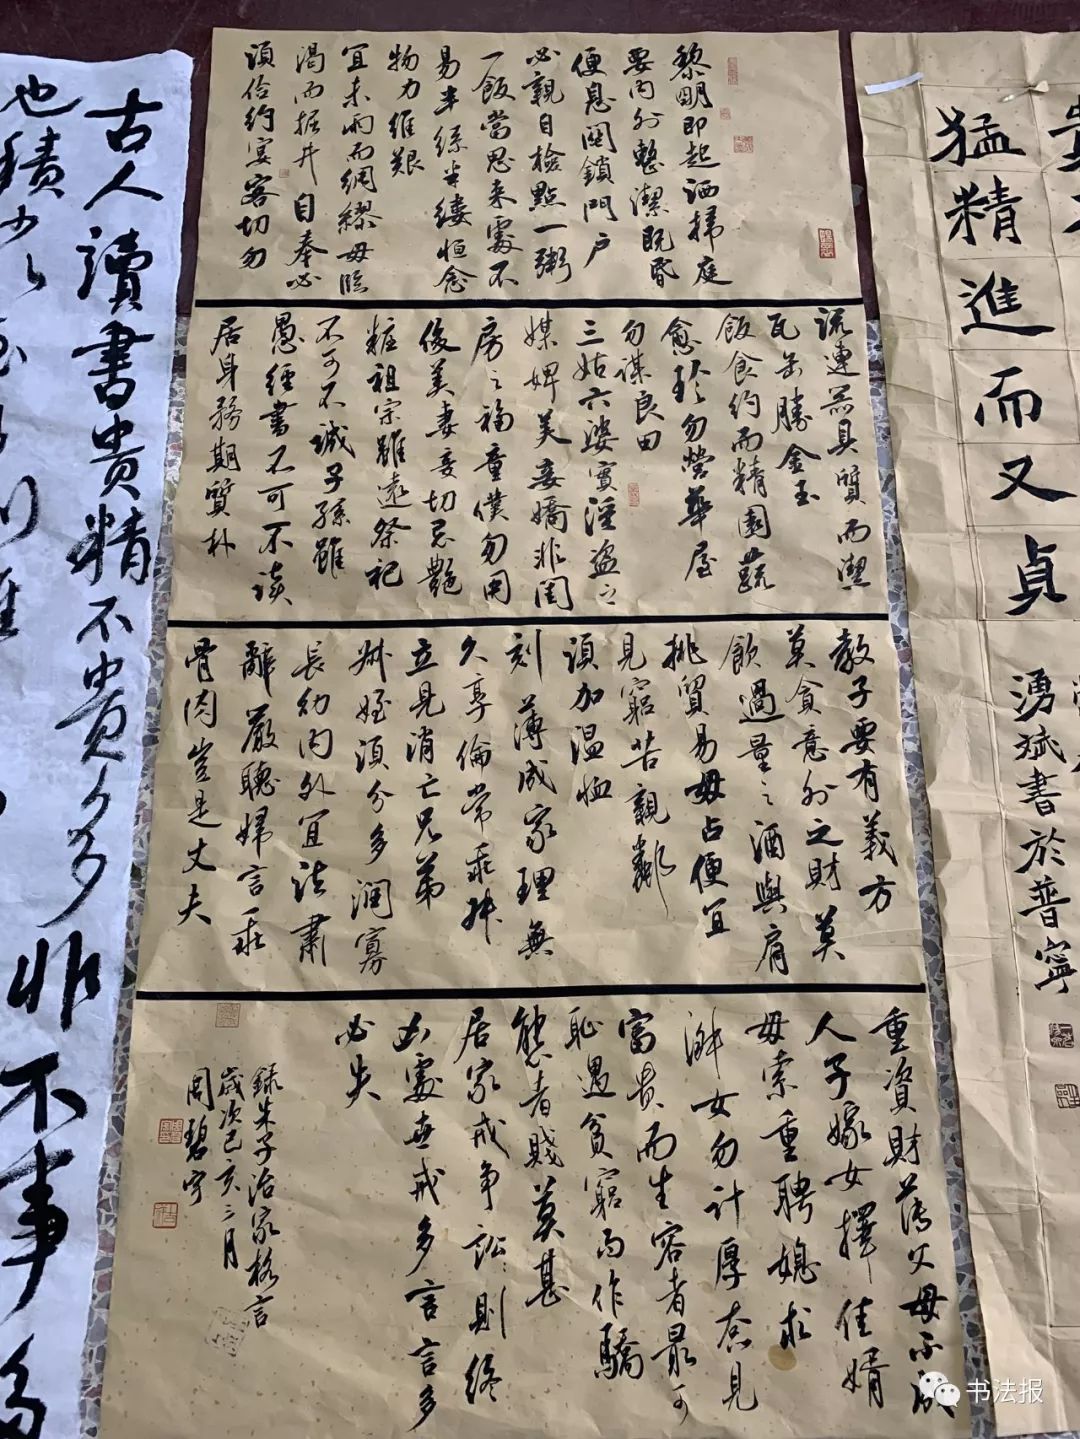 黎明即起洒掃庭
要内外整潔既昏
便息關鎖門户
必親自檢點一粥
一飯當思来處不
易半絲半缕恒念
物力維艱
宜未雨而綢繆毋臨
渴而掘井自奉必
須儉約宴客切勿
流連器具質而潔
瓦缶勝金玉
飯食約而精園蔬
愈珍勿營華屋
勿謀良田
三姑六婆實淫盗之
媒婢美妾嬌非閨
房之福童僕勿用
俊美妻妾切忌艷
粧祖宗雖遠祭祀
不可不誠子孫雖
愚經書不可不读
居身務期質朴
教子要有義方
莫貪意外之財莫
飲過量之酒與肩
挑貿易毋占便宜
見窮苦親鄰
須加温恤
刻薄成家理無
久享倫常乖舛
立見消亡兄弟
叔姪須分多润寡
長幼内外宜法肅
辭嚴聽婦言乖
骨肉豈是丈夫
重資財薄父母不成
人子嫁女擇佳婿
毋索重聘媳求
淑女勿計厚奁見
富贵而生容者最可
恥遇貧窮而作驕
態者賤莫甚
居家戒争訟訟則终
凶處世戒多言言多
必失
録朱子治家格言
歲次己亥二月
周碧宇
古人讀書贵精不贵多非不事多
也積少以
猛精進而又貞
湧斌書於普寧
书法报